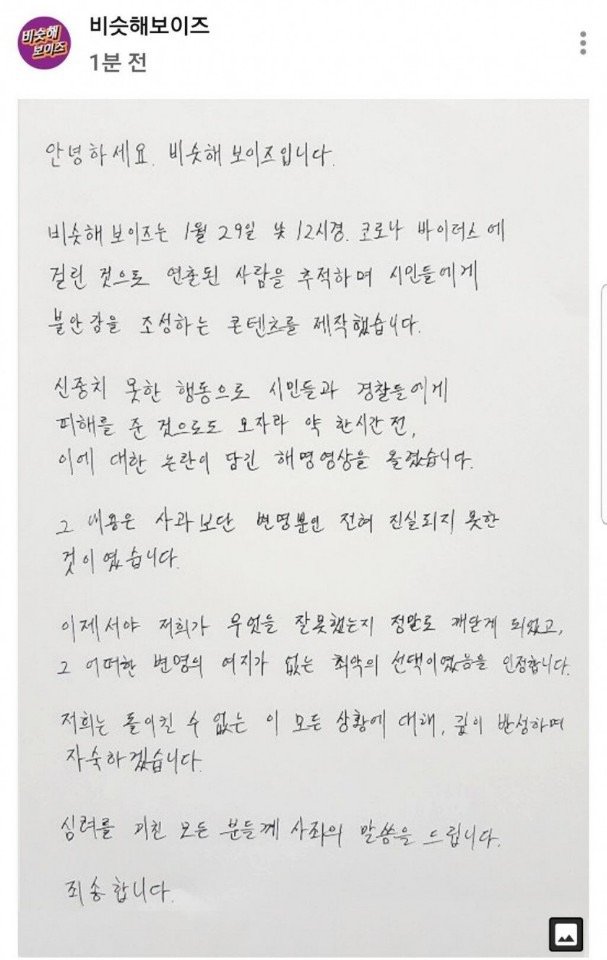 비슷해
보이즈
비슷해보이즈
1분 전
안녕하세요. 비슷해보이즈입니다.
비슷해보이즈는 1월 29일 낮 12시경. 코로나 바이러스에
걸린 것으로 연출된 사람을 추적하며 시민들에게
불안감을 조성하는 콘텐츠를 제작했습니다.
신중치 못한 행동으로 시민들과 경찰들에게
피해를 준 것으로도 모자라 약 한시간 전,
이에 대한 논란이 담긴 해명영상을 올렸습니다.
그 내용은 사과보단 변명뿐인 전혀 진실되지 못한
것이였습니다.
이제서야 저희가 무엇들 잘못했는지 정말로 깨닫게 되었고,
그 어떠한 변명의 여지가 없는 최악의 선택이였음을 인정합니다.
저희는 돌이킬 수 없는 이 모든 상황에 대해, 깊이 반성하며
자숙하겠습니다.
심려를 끼친 모든 분들께 사죄의 말씀을 드립니다.
죄송합니다.